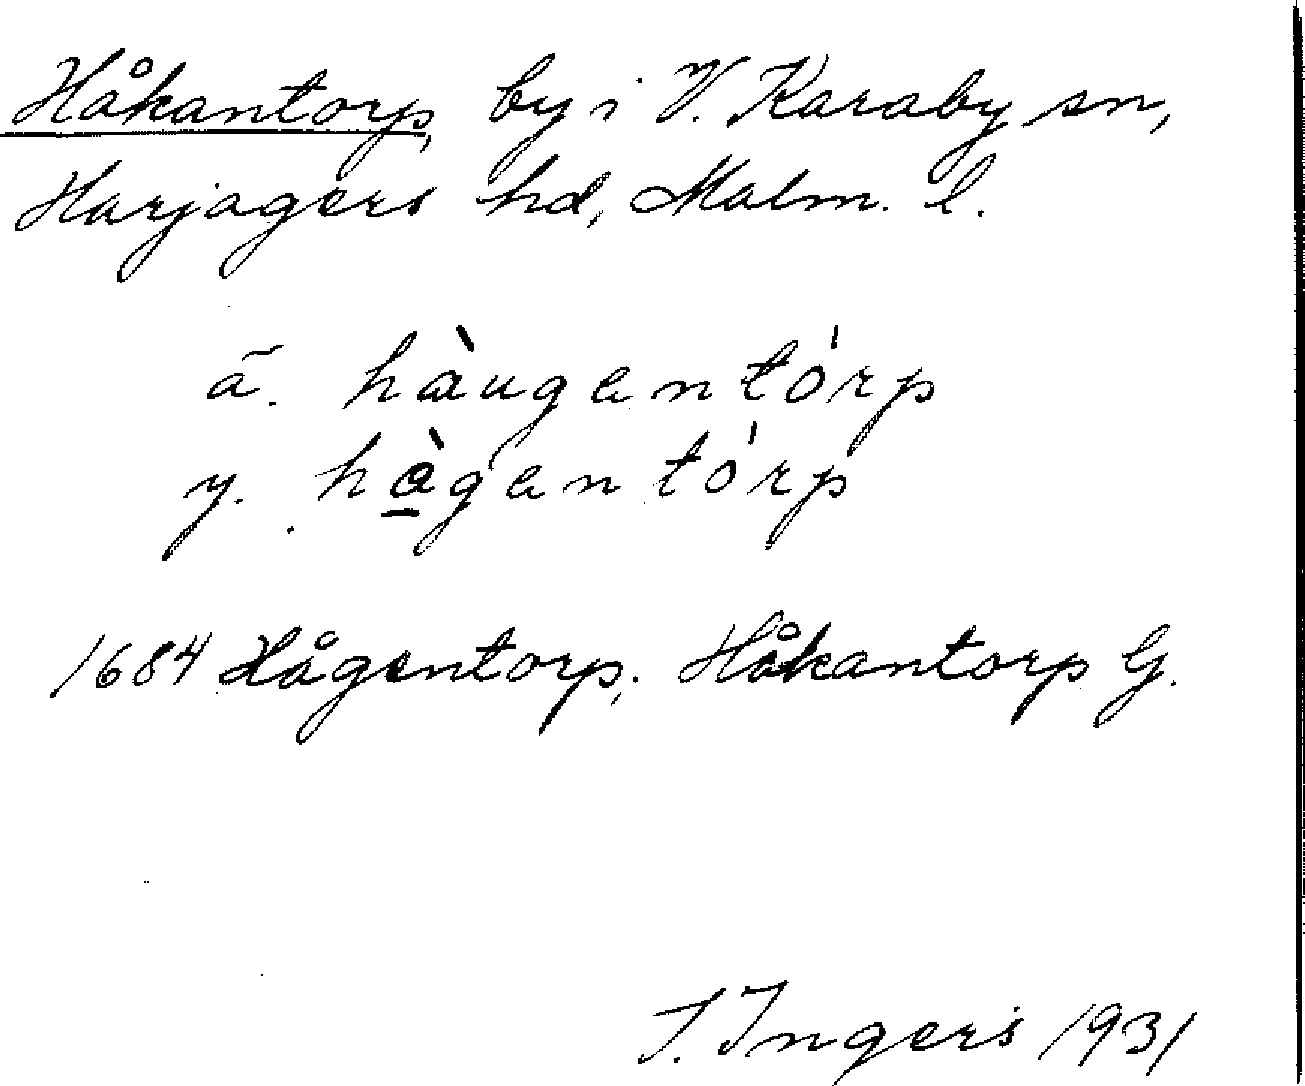 Håkantorp, by i V. Karaby sn,
Harjagers hd, Malm. l.
ä. hàugentórp
y. hàgentórp
1684 Hågentorp. Håkantorp G.
I. Ingers 1931